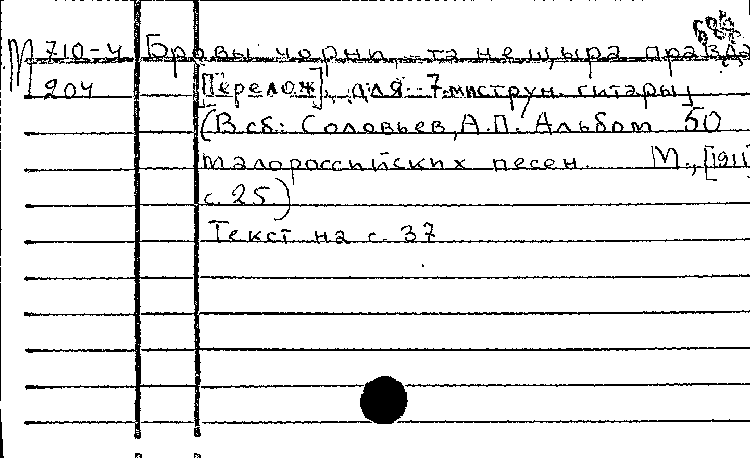 М 710-4 Бровы чорни, та не щыра правда
204 [Перелож]. для 7-миструн. гитары
(В сб.: Соловьев, А.П. Альбом 50
малороссийских песен. М., [1911]
с. 25)
Текст на с. 37